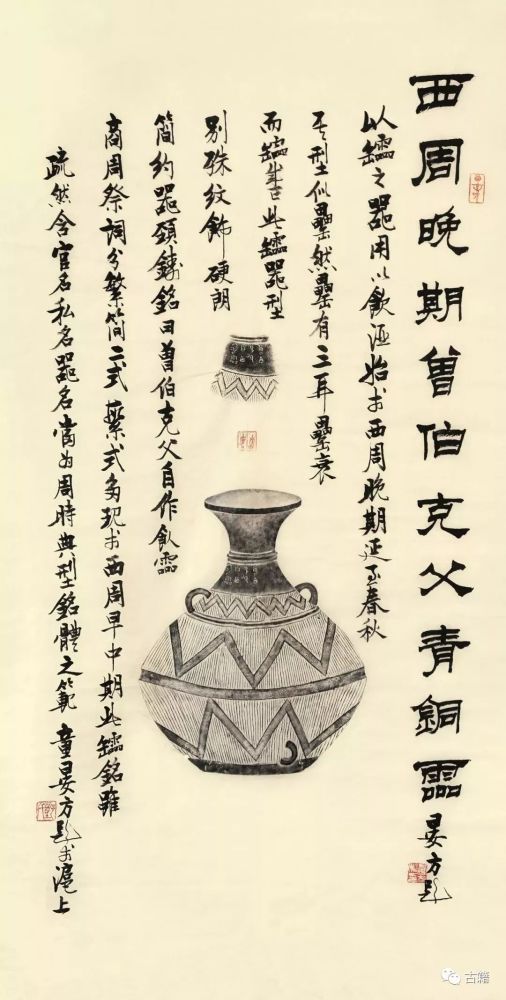 西周晚期曾伯克父青銅霝
晏方題
以䍅之器用以飲酒始於西周晚期延至春秋
其型似罍然罍有三耳罍衰
而䍅此䍅器型
别殊紋飾硬朗
簡約器頸鑄銘曰曾伯克父自作飲霝
商周祭詞分繁簡二式繁式多現於西周早中期此䍅銘雖
疏然含官名私名器名當为周時典型銘體之範 童晏方題於滬上
古籍